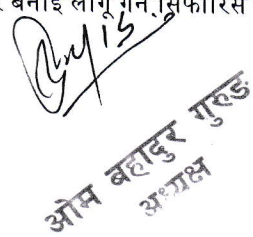 बनाई लागू गर्न सिफारिस
ओम बहादुर गुरुङ
अध्यक्ष